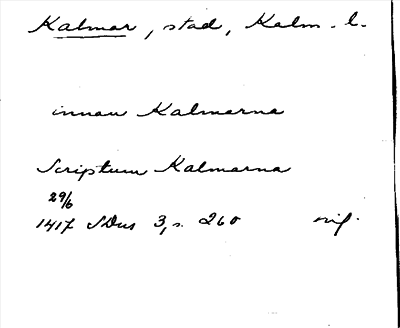 Kalmar, stad, Kalm. l.
innan Kalmarna
Scriptum Kalmarna
29/6
1417 SDns 3, s. 260 orig.